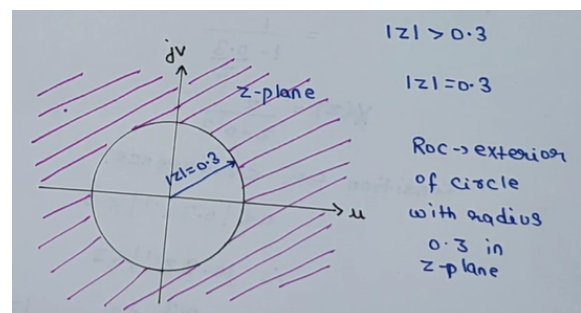 jv
z-plane
|z|=0.3
u
|z| > 0.3
|z|=0.3
ROC→exterior
of circle
with radius
0.3 in
z-plane